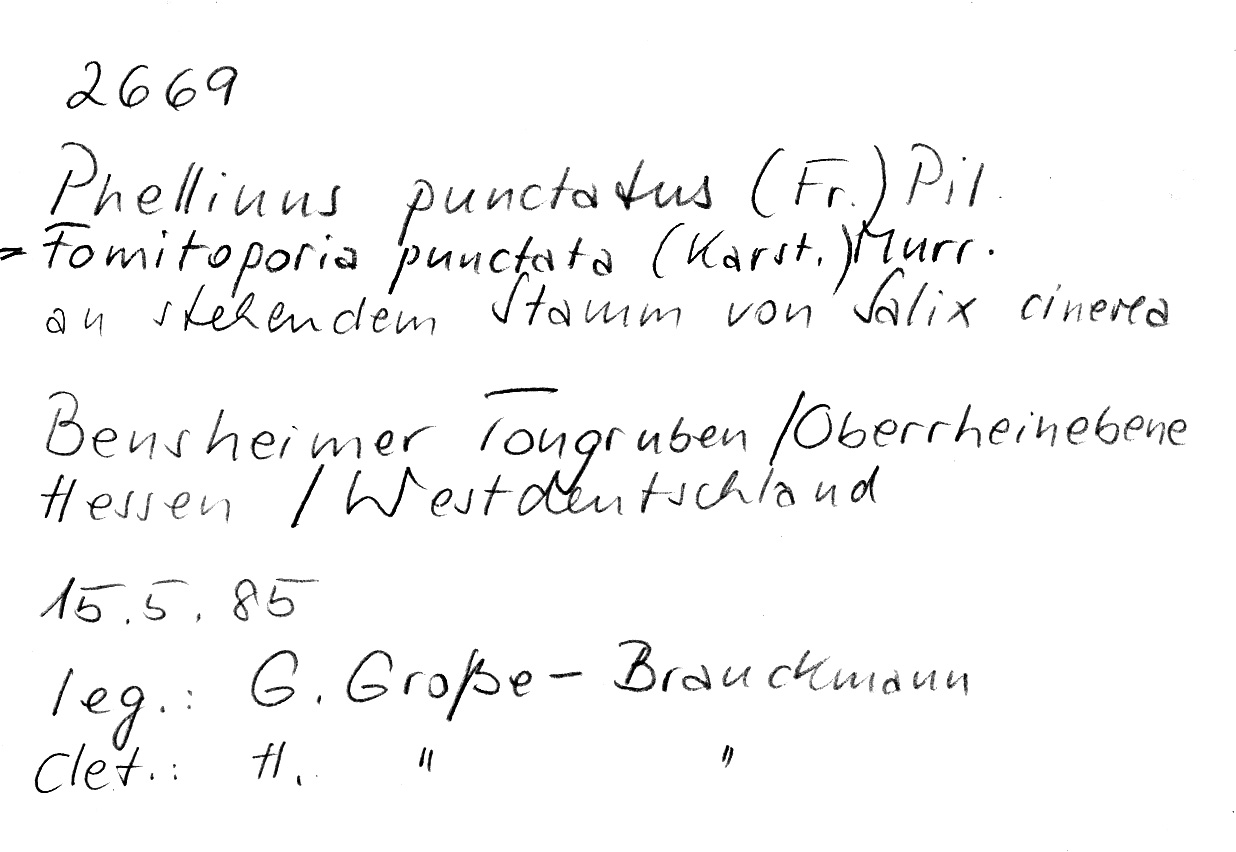 2669
Phellinus punctatus (Fr.) Pil.
= Fomitoporia punctata (Karst.) Murr.
an stehendem Stamm von Salix cinerea
Bensheimer Tongruben / Oberrheinebene
Hessen / Westdeutschland
15.5.85
leg.: G. Große-Brauckmann
det.: H. " "